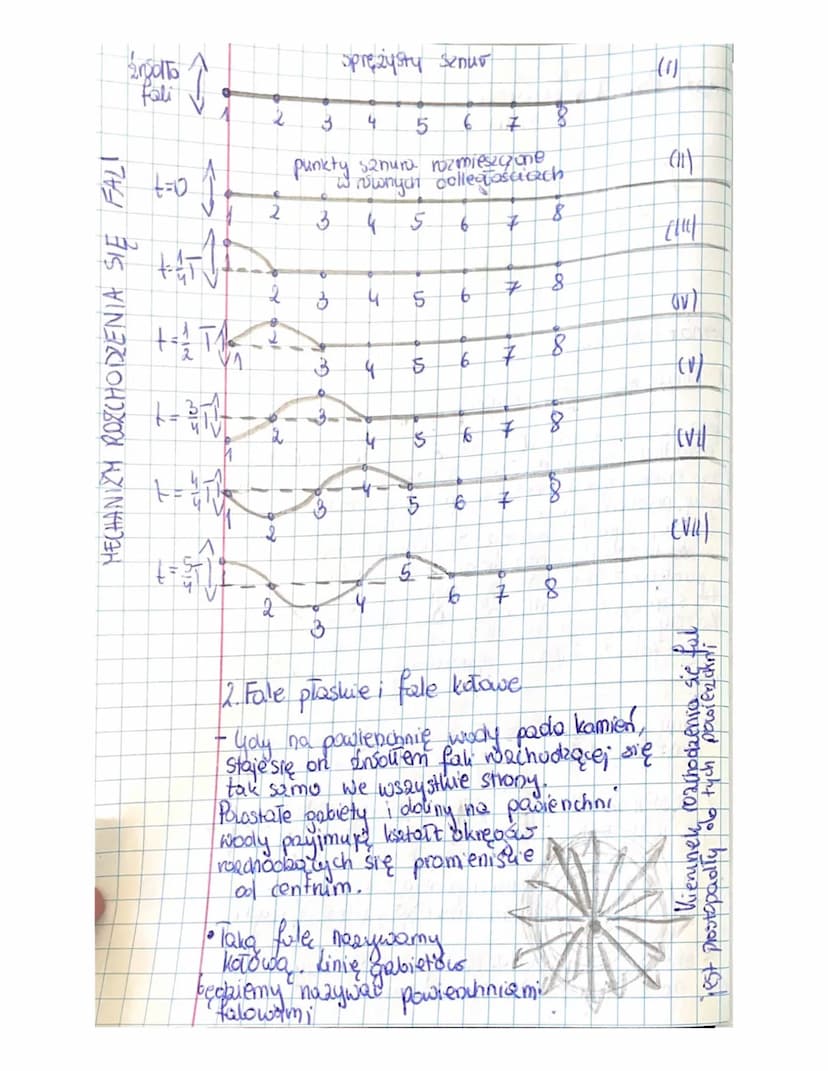 MECHANIZM ROZCHODZENIA SIĘ FALI
źródło fali
sprężysty sznur
(I)
1 2 3 4 5 6 7 8
t=0
punkty sznura rozmieszczone
w równych odległościach
(II)
1 2 3 4 5 6 7 8
t=1/4T
(III)
2 3 4 5 6 7 8
t=1/2T
(IV)
1 2 3 4 5 6 7 8
t=3/4T
(V)
1 2 3 4 5 6 7 8
t=4/4T
(VI)
1 2 3 4 5 6 7 8
t=5/4T
(VII)
2 3 4 5 6 7 8
2. Fale płaskie i fale kołowe
- Gdy na powierzchnię wody pada kamień,
staje się on źródłem fali rozchodzącej się
tak samo we wszystkie strony.
Polostałe gabiety i doliny na powierzchni
wody przyjmują kształt okręgów
rozchodzących się promieniście
od centrum.
• Taką falę nazywamy
kołową. Linię gabietów
będziemy nazywać powierzchniami
falowymi
Kierunek rozchodzenia się fal
jest prostopadły do tych powierzchni